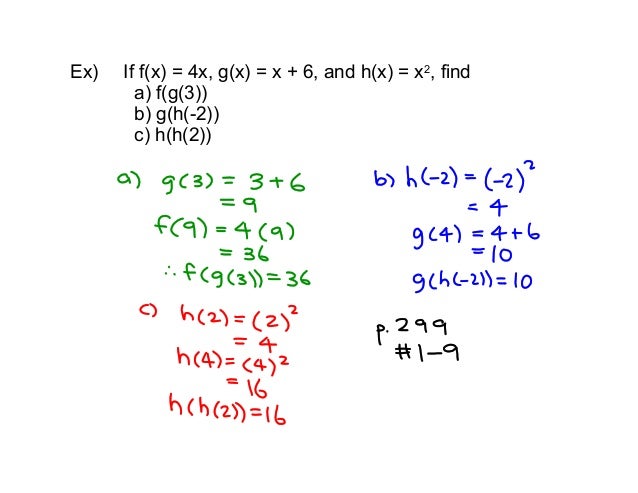 Ex) If f(x) = 4x, g(x) = x + 6, and h(x) = x², find
a) f(g(3))
b) g(h(-2))
c) h(h(2))
a) g(3) = 3+6
= 9
f(9) = 4(9)
= 36
∴ f(g(3)) = 36
b) h(-2) = (-2)²
= 4
g(4) = 4+6
= 10
g(h(-2)) = 10
c) h(2) = (2)²
= 4
h(4) = (4)²
= 16
h(h(2)) = 16
p. 299
#1-9